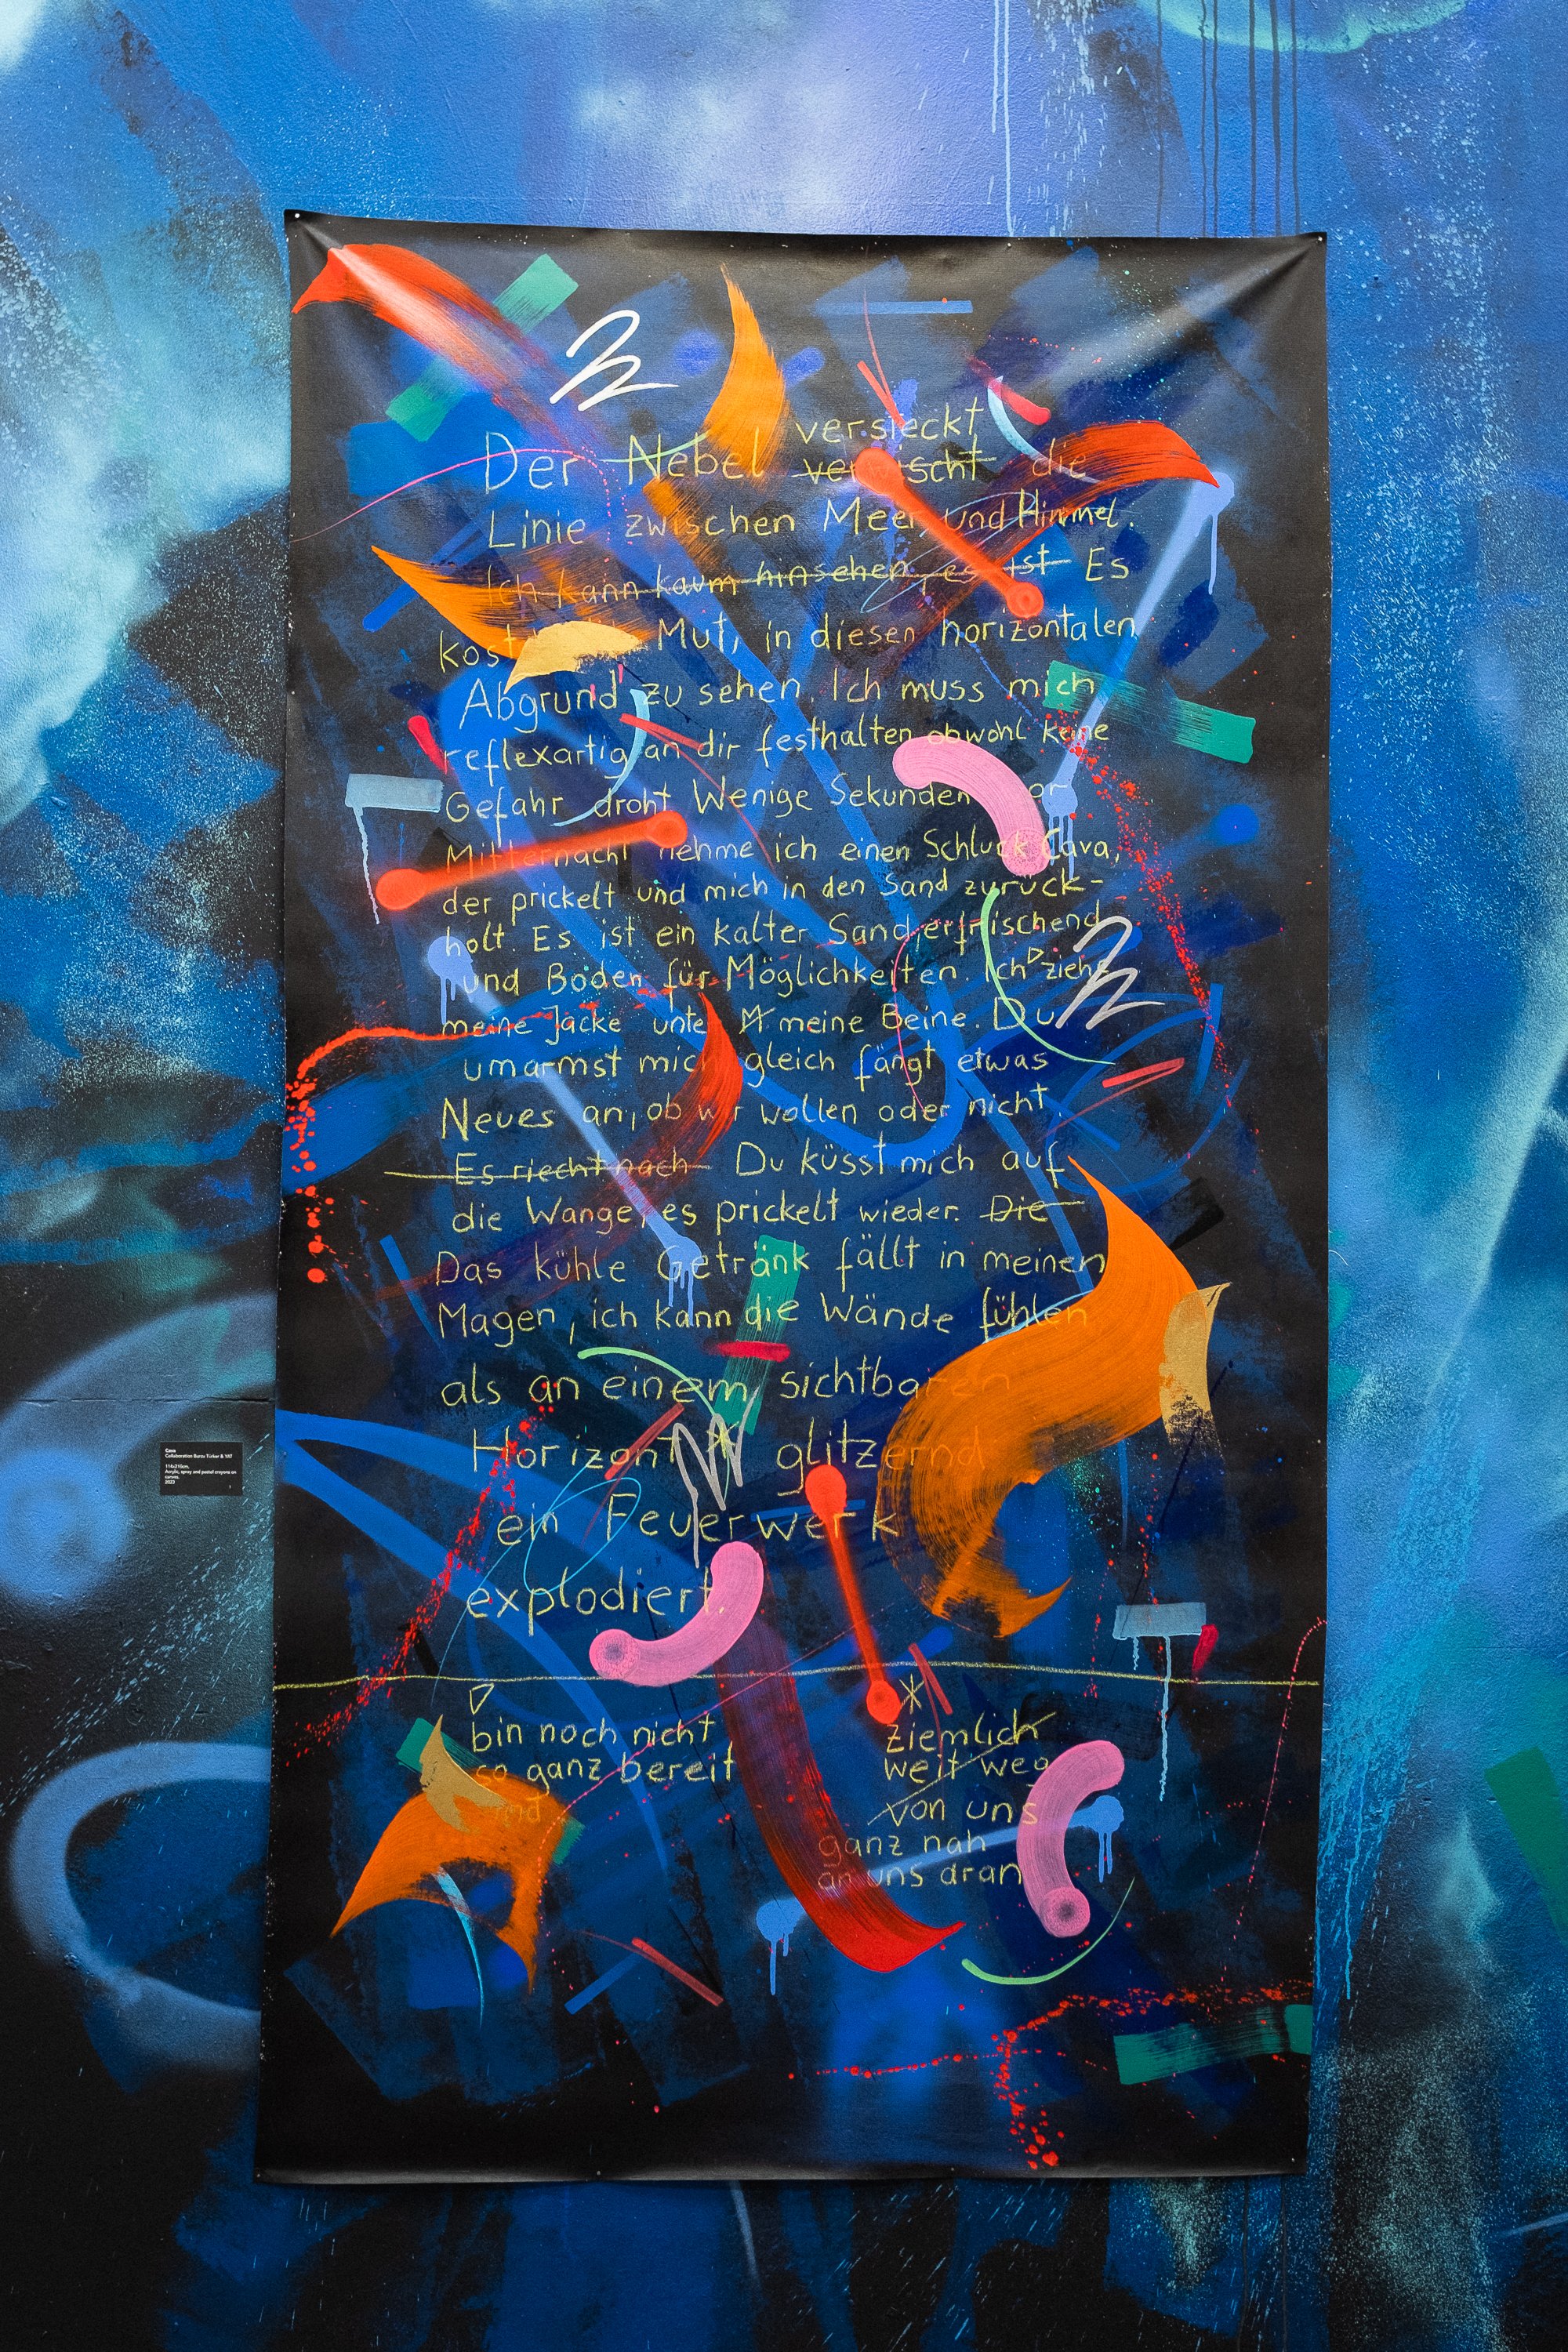 versteckt
Der Nebel verwischt die
Linie zwischen Meer und Himmel.
Ich kann kaum hinsehen, es ist Es
kost Mut, in diesen horizontalen
Abgrund zu sehen. Ich muss mich
reflexartig an dir festhalten obwohl keine
Gefahr droht Wenige Sekunden vor
Mitternacht nehme ich einen Schluck Cava,
der prickelt und mich in den Sand zurück-
holt. Es ist ein kalter Sand, erfrischend
und Boden für Möglichkeiten. Ich ziehe
meine Jacke unter meine Beine. Du
umarmst mich gleich fängt etwas
Neues an, ob wir wollen oder nicht.
Es riecht nach Du küsst mich auf
die Wange, es prickelt wieder. Die
Das kühle Getränk fällt in meinen
Magen, ich kann die Wände fühlen
als an einem sichtbaren
Horizont * glitzernd
ein Feuerwerk
explodiert.
bin noch nicht
so ganz bereit
und
*
ziemlich
weit weg
von uns
ganz nah
an uns dran
Cava
Collaboration Barns Türker & 1UP
114x210cm,
Acrylic, spray and pastel crayons on
canvas.
2023